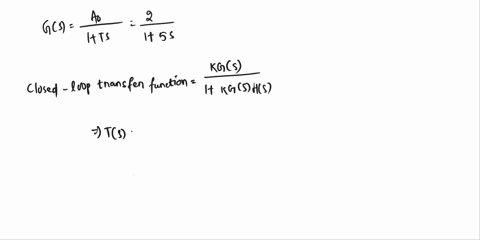 G(s) = A₀ / (1+Ts) = 2 / (1+5s)
Closed-loop transfer function = KG(s) / (1+ KG(s)H(s))
⇒ T(s)